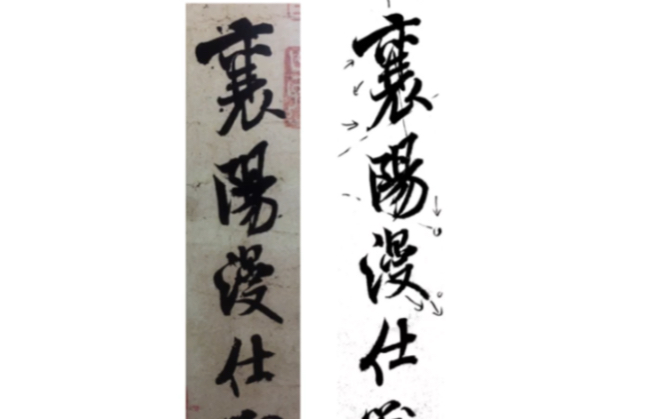 襄陽漫仕
襄陽漫仕